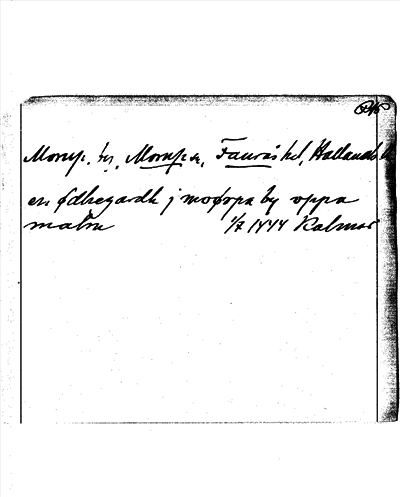 Morup, by, Morups sn, Faurås hd, Hallands l
en ødhegardh j moþorpa by oppa
malm 1/7 1444 Kalmar